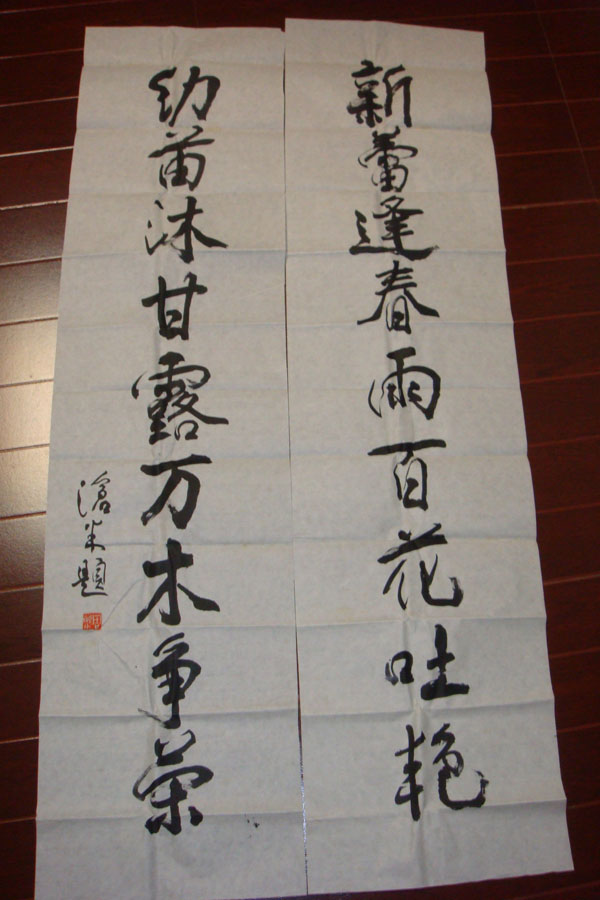 新蕾逢春雨百花吐艳
幼苗沐甘露万木争荣
滄米題